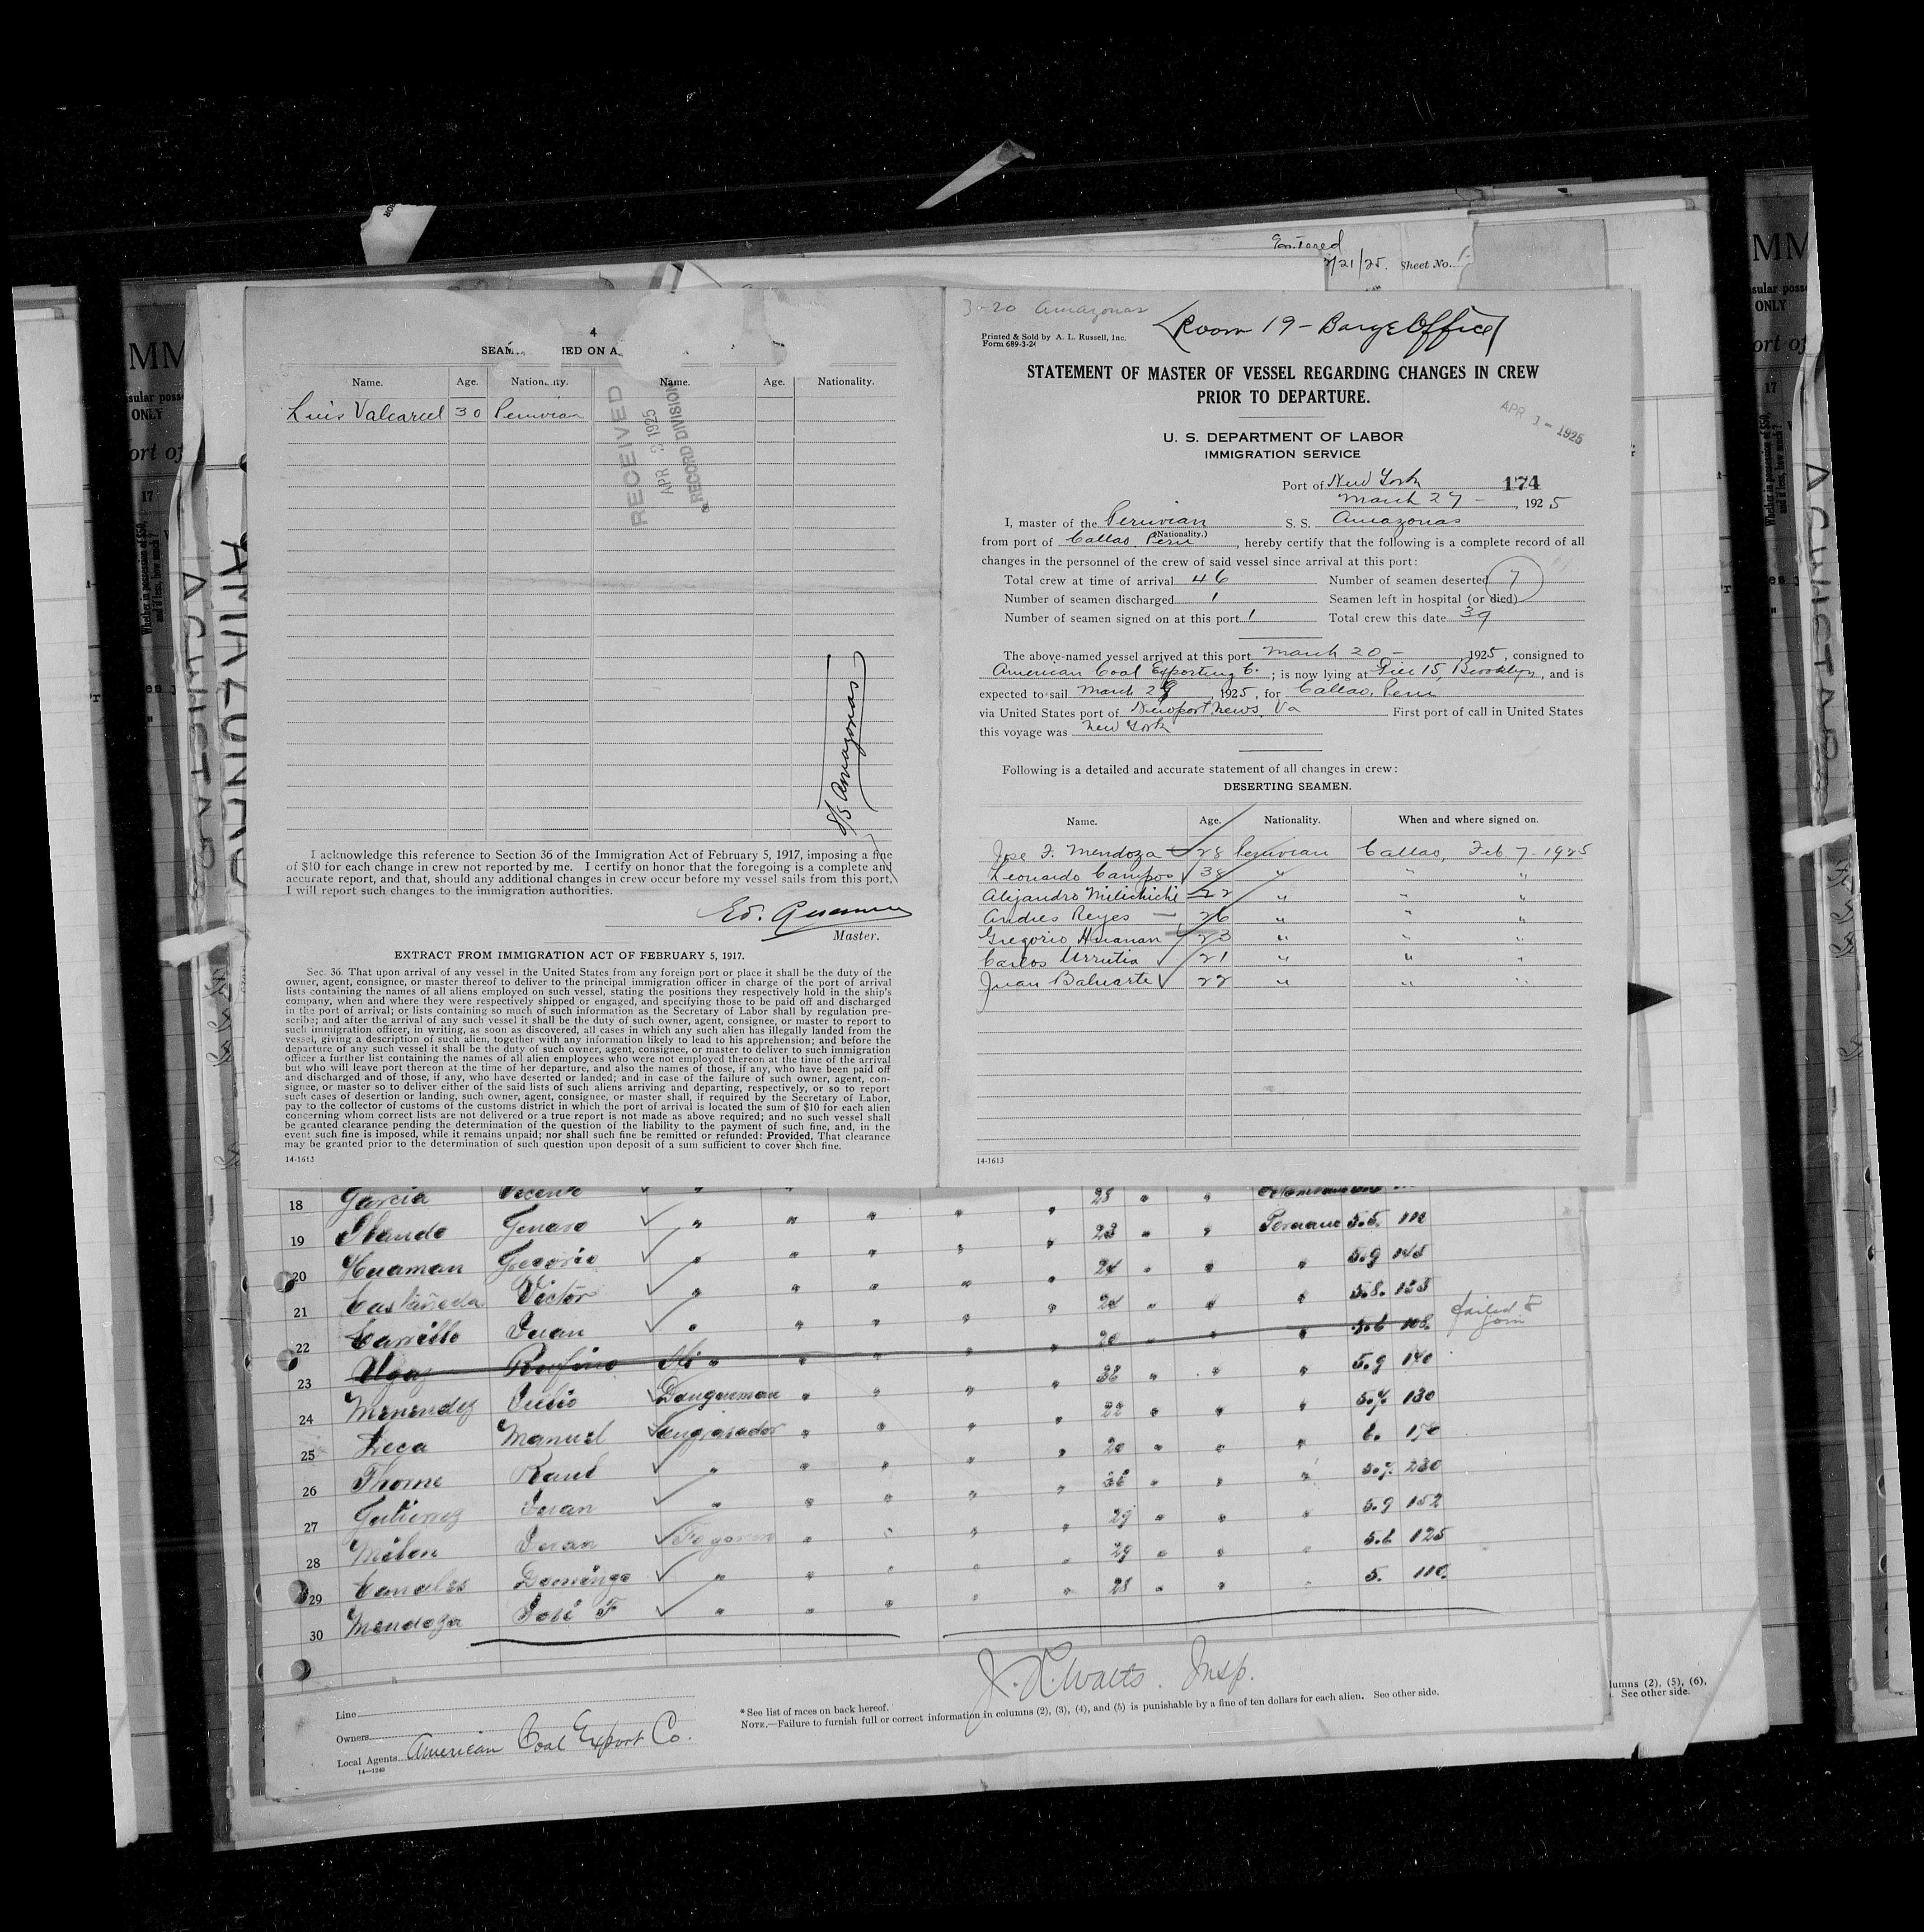 Entered
2/21/25. Sheet No. 1
4
SEAM IED ON A
Name. Age. Nationality. Name. Age. Nationality.
Luis Valcarcel 30 Peruvian
RECEIVED
APR 2 1925
RECORD DIVISION
S/S Amazonas
I acknowledge this reference to Section 36 of the Immigration Act of February 5, 1917, imposing a fine
of $10 for each change in crew not reported by me. I certify on honor that the foregoing is a complete and
accurate report, and that, should any additional changes in crew occur before my vessel sails from this port,
I will report such changes to the immigration authorities.
Master.
EXTRACT FROM IMMIGRATION ACT OF FEBRUARY 5, 1917.
Sec. 36. That upon arrival of any vessel in the United States from any foreign port or place it shall be the duty of the
owner, agent, consignee, or master thereof to deliver to the principal immigration officer in charge of the port of arrival
lists containing the names of all aliens employed on such vessel, stating the positions they respectively hold in the ship's
company, when and where they were respectively shipped or engaged, and specifying those to be paid off and discharged
in the port of arrival; or lists containing so much of such information as the Secretary of Labor shall by regulation pre-
scribe; and after the arrival of any such vessel it shall be the duty of such owner, agent, consignee, or master to report to
such immigration officer, in writing, as soon as discovered, all cases in which any such alien has illegally landed from the
vessel, giving a description of such alien, together with any information likely to lead to his apprehension; and before the
departure of any such vessel it shall be the duty of such owner, agent, consignee, or master to deliver to such immigration
officer a further list containing the names of all alien employees who were not employed thereon at the time of the arrival
but who will leave port thereon at the time of her departure, and also the names of those, if any, who have been paid off
and discharged and of those, if any, who have deserted or landed; and in case of the failure of such owner, agent, con-
signee, or master so to deliver either of the said lists of such aliens arriving and departing, respectively, or so to report
such cases of desertion or landing, such owner, agent, consignee, or master shall, if required by the Secretary of Labor,
pay to the collector of customs of the customs district in which the port of arrival is located the sum of $10 for each alien
concerning whom correct lists are not delivered or a true report is not made as above required; and no such vessel shall
be granted clearance pending the determination of the question of the liability to the payment of such fine, and, in the
event such fine is imposed, while it remains unpaid; nor shall such fine be remitted or refunded: Provided, That clearance
may be granted prior to the determination of such question upon deposit of a sum sufficient to cover such fine.
14-1613
3-20 Amazonas
Room 19 - Barge Office
Printed & Sold by A. L. Russell, Inc.
Form 689-3-24
STATEMENT OF MASTER OF VESSEL REGARDING CHANGES IN CREW
PRIOR TO DEPARTURE.
APR 1 - 1925
U. S. DEPARTMENT OF LABOR
IMMIGRATION SERVICE
Port of New York 174
March 27 - , 1925
I, master of the Peruvian S. S. Amazonas
(Nationality.)
from port of Callao, Peru, hereby certify that the following is a complete record of all
changes in the personnel of the crew of said vessel since arrival at this port:
Total crew at time of arrival 46 Number of seamen deserted 7
Number of seamen discharged 1 Seamen left in hospital (or died)
Number of seamen signed on at this port 1 Total crew this date 39
The above-named vessel arrived at this port March 20 - , 1925, consigned to
American Coal Exporting C.; is now lying at Pier 15, Brooklyn, and is
expected to sail March 29, 1925, for Callao, Peru
via United States port of Newport News, Va First port of call in United States
this voyage was New York
Following is a detailed and accurate statement of all changes in crew:
DESERTING SEAMEN.
Name. Age. Nationality. When and where signed on.
Jose F. Mendoza 28 Peruvian Callao, Feb 7 - 1925
Leonardo Campos 38 " " "
Alejandro Milichichi 22 " " "
Andres Reyes 26 " " "
Gregorio Huanan 23 " " "
Carlos Urrutia 21 " " "
Juan Baluarte 22 " " "
14-1613
18 Garcia Vicente 28
19 Obando Genaro 23 Peruano 5.5. 110
20 Huaman Gregorio 24 5.9 145
21 Castañeda Victor 24 5.8. 133
22 Carrillo Juan 20 5.6 108.
failed to join
23 Ugaz Rufino 32 5.9 140
24 Menendez Julio Donqueman 22 5.7. 130
25 Leca Manuel Engrasador 20 6. 170
26 Thorne Raul 36 5.7. 230
27 Gutierrez Juan 29 5.9 152
28 Milon Juan Fogonero 29 5.6 125
29 Canales Domingo 28 5. 110.
30 Mendoza José F
J. R. Watts. Insp.
Line
Owners
Local Agents American Coal Export Co.
14-1240
*See list of races on back hereof.
NOTE.—Failure to furnish full or correct information in columns (2), (3), (4), and (5) is punishable by a fine of ten dollars for each alien. See other side.
lumns (2), (5), (6),
See other side.